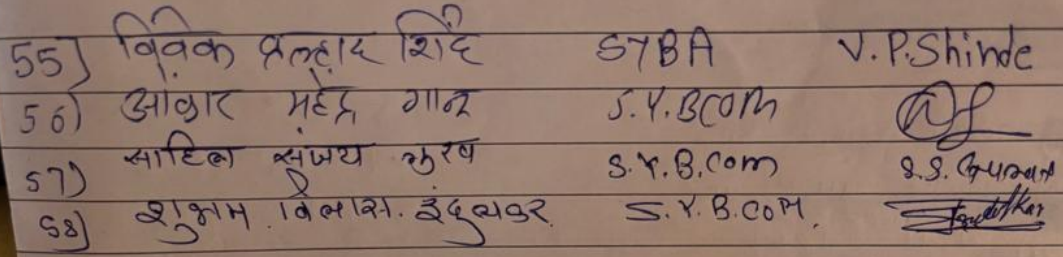 55] विवेक प्रल्हाद शिंदे SYBA V.P.Shinde
56) ओंकार महेंद्र S.Y.BCOM
57) साहिल संजय गुरव S.Y.B.Com S.S.Gurav
58) शुभम विलास. S.Y.B.COM.